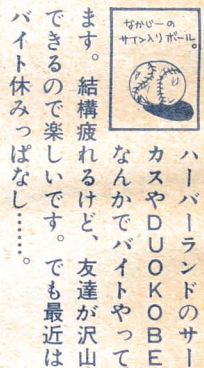 なかじーの
サイン入りボール。
ハーバーランドのサー
カスやDUOKOBE
なんかでバイトやって
ます。結構疲れるけど、友達が沢山
できるので楽しいです。でも最近は
バイト休みっぱなし……。